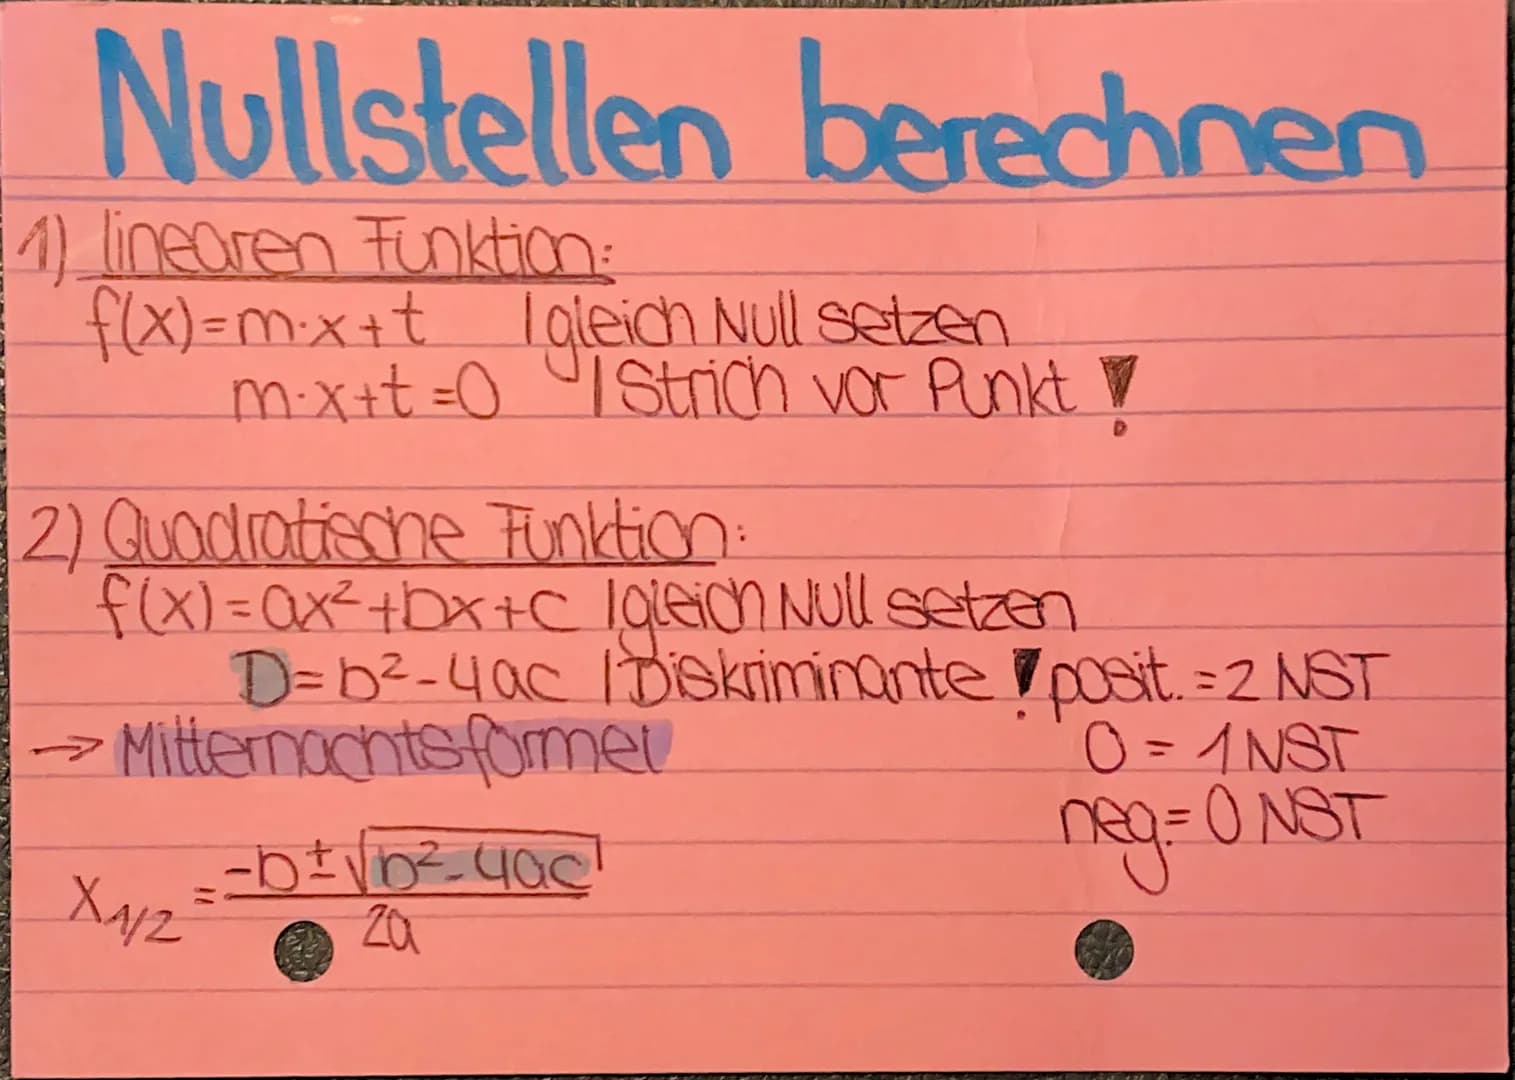 Nullstellen berechnen
1) linearen Funktion:
f(x)=m·x+t | gleich Null setzen
m·x+t=0 | Strich vor Punkt !
2) Quadratische Funktion:
f(x)=ax²+bx+c | gleich Null setzen
D=b²-4ac | Diskriminante ! posit.=2 NST
0=1NST
neg.=0 NST
→ Mitternachtsformel
x₁/₂ = (-b±√(b²-4ac))/2a